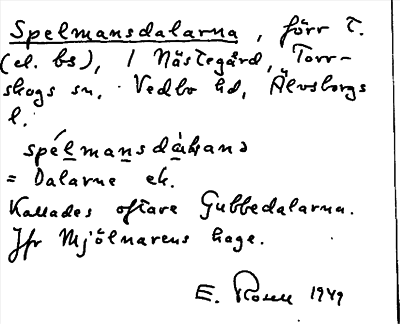 Spelmansdalarna, förr t.
(el. bs), / Nästegård, Torr-
skogs sn, Vedbo hd, Älvsborgs
l.
spélmansdàƚana
= Dalarne ek.
Kallades oftare Gubbedalarna.
Jfr Mjölnarens hage.
E. Rosell 1949